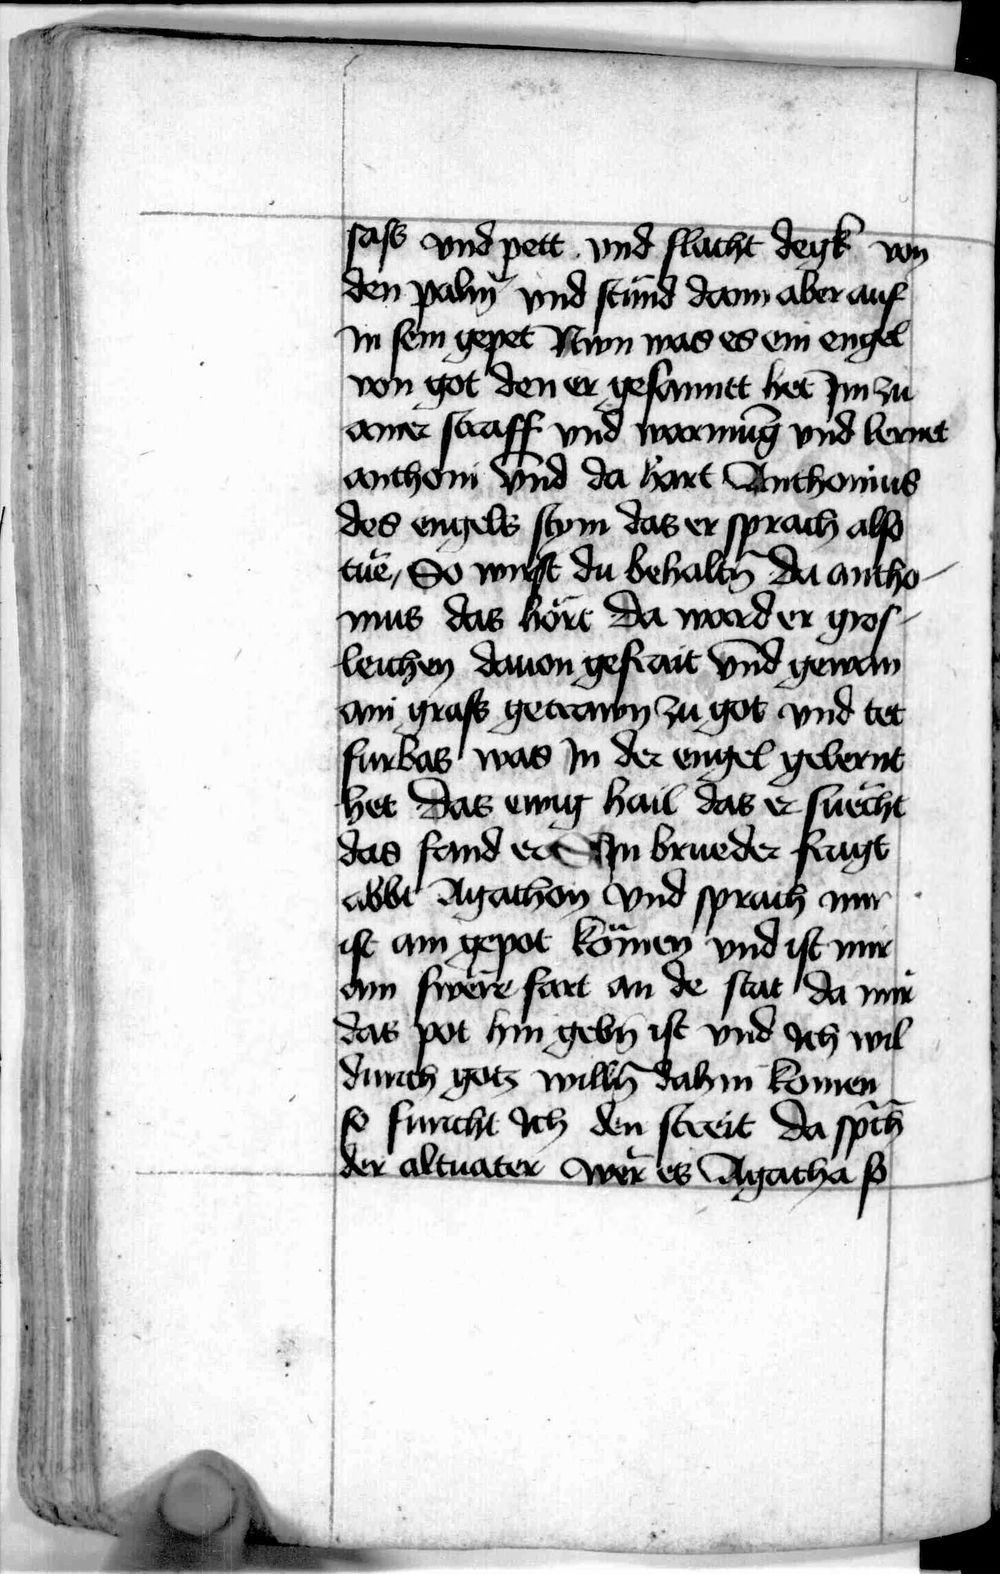 sass vnd pett vnd flacht degk von
den palm̄ vnd stund dann aber auf
in sein gepet Nwn was es ein engel
von got den er gesanntt het Im zu
ainer straff vnd warnūg vnd lernet
anthoni vnd da hört Anthonius
des engels stym das er sprach also
tue, So wirst du behaltn̄ Da antho-
nius das hört Da ward er gros-
leichen dauon gefrait vnd gewan
ain grass getrawn zu got vnd tet
furbas was In der engel gelernt
het Das ewig hail das er suecht
das fand er Ain brueder fragt
abbt Agathon vnd sprach mir
ist ain gepot kömen vnd ist mir
ain swere fart an de stat da mir
das pot hin gebn̄ ist vnd Ich wil
durch gotz willn̄ dahin komen
so furcht Ich den streit Da sp̄ch
der altuater wer es Agatha so